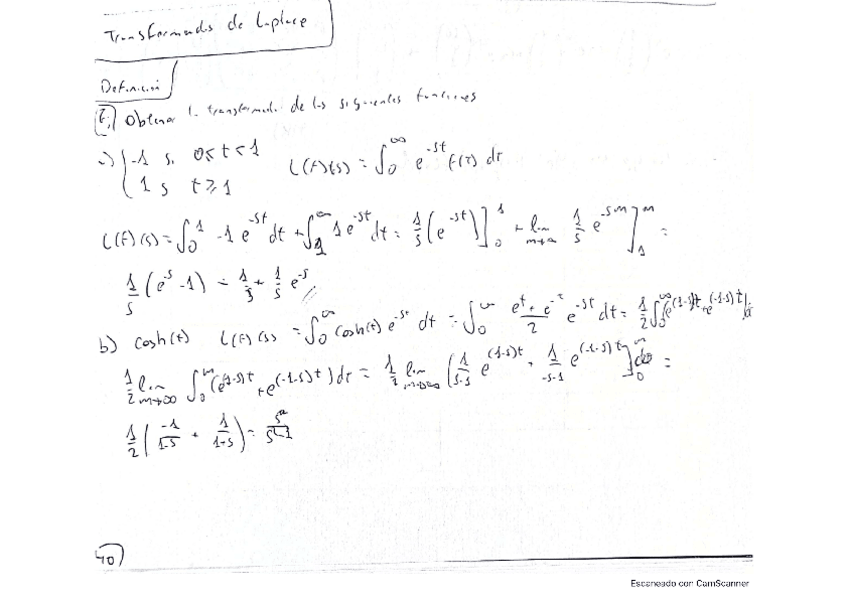 Transformada de Laplace
Definición
Obtener la transformada de las siguientes funciones
a) { -1 si 0≤t<1
1 si t≥1
L(f)(s) = ∫₀^∞ e^{-st} f(t) dt
L(f)(s) = ∫₀^1 -1 e^{-st} dt + ∫₁^∞ 1 e^{-st} dt = 1/s (e^{-st})]₀^1 + lim_{m→∞} 1/s e^{-sm}]₁^m =
1/s (e^{-s} -1) = 1/s + 1/s e^{-s} //
b) cosh(t) L(f)(s) = ∫₀^∞ cosh(t) e^{-st} dt = ∫₀^∞ e^t + e^{-t}/2 e^{-st} dt = 1/2 ∫₀^∞ e^{(1-s)t} + e^{(-1-s)t}
1/2 lim_{m→∞} ∫₀^m (e^{(1-s)t} + e^{(-1-s)t}) dt = 1/2 lim_{m→∞} (e^{(1-s)t} + 1/-s-1 e^{(-1-s)t}]₀^m =
1/2 ( -1/1-s + 1/1+s ) =
40)
Escaneado con CamScanner